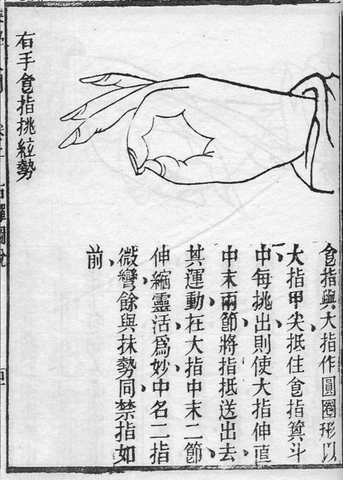 右手食指挑絃勢
食指與大指作圓圈形以
大指甲尖抵住食指箕斗
中每挑出則使大指伸直
中末兩節將指抵送出去
其運動在大指中末二節
伸縮靈活爲妙中名二指
微彎餘與抹勢同禁指如
前